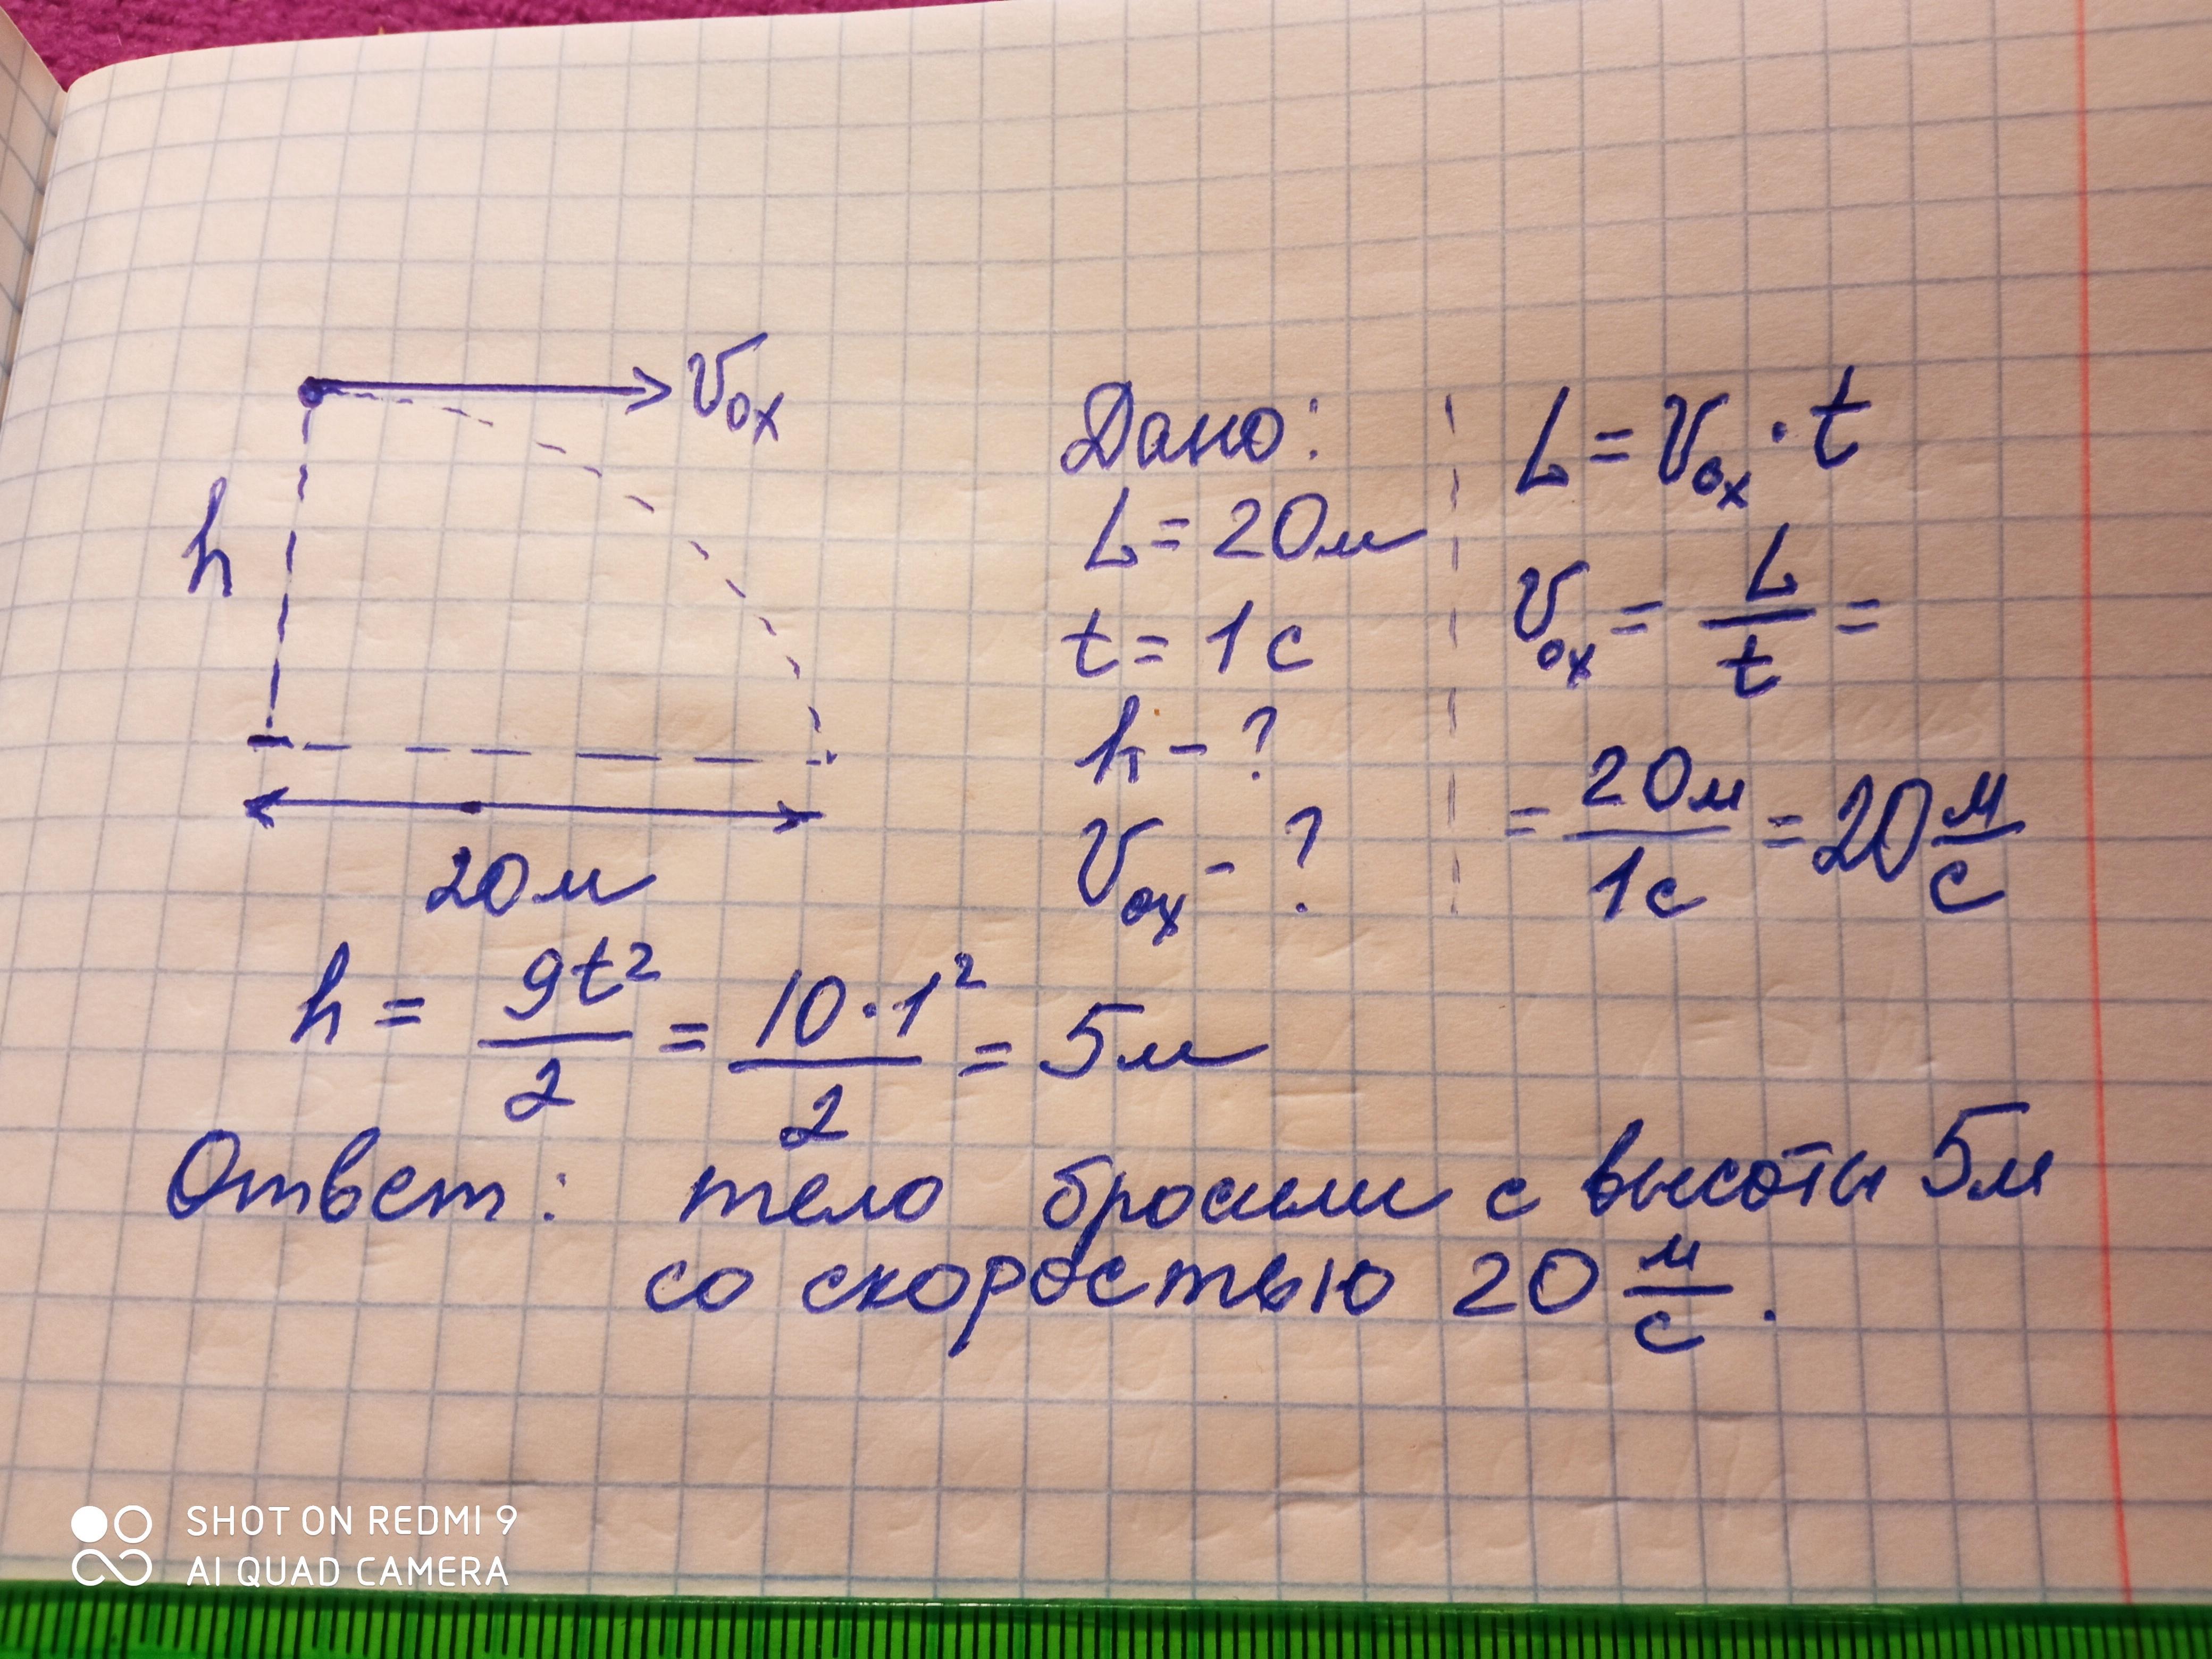 v₀ₓ
h
20м
Дано:
L = 20м
t = 1с
h - ?
v₀ₓ - ?
L = v₀ₓ · t
v₀ₓ = L/t =
= 20м/1с = 20 м/с
h = gt²/2 = 10·1²/2 = 5м
Ответ: тело бросили с высоты 5м
со скоростью 20 м/с.
SHOT ON REDMI 9
AI QUAD CAMERA